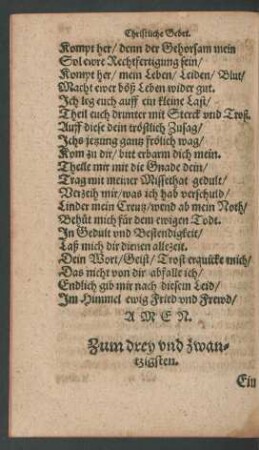 Christliche Gebet.
Kompt her/ denn der Gehorsam mein
Sol ewre Rechtfertigung sein/
Kompt her/ mein Leben/ Leiden/ Blut/
Macht ewer böß Leben wider gut.
Ich leg euch auff ein kleine Last/
Theil euch drunter mit Sterck vnd Trost.
Auff diese dein tröstlich Zusag/
Ichs jetzung gantz frölich wag/
Kom zu dir/ but erbarm dich mein.
Theile mir mit die Gnade dein/
Trag mit meiner Missethat gedult/
Verzeih mir/ was ich hab verschuld/
Linder mein Creutz/ wend ab mein Noth/
Behüt mich für dem ewigen Todt.
In Gedult vnd Bestendigkeit/
Laß mich dir dienen allezeit.
Dein Wort/ Geist/ Trost erquicke mich/
Das nicht von dir abfalle ich/
Endlich gib mir nach diesem Leid/
Im Himmel ewig Fried vnd Frewd/
A M E N.
Zum drey vnd zwan-
tzigsten.
Ein